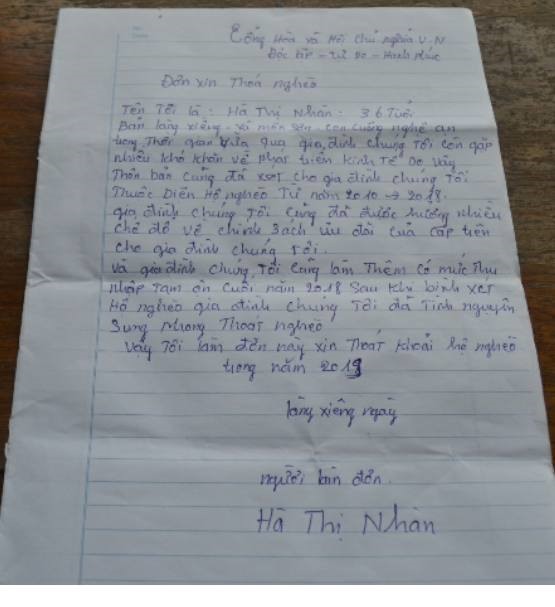 Cộng Hòa xã Hội chủ nghĩa V.N
Độc lập - Tự Do - Hạnh Phúc
Đơn xin Thoá nghèo
Tên Tôi là: Hà Thị Nhàn: 36 Tuổi
Bản làng xiềng - xã môn sơn - con cuông nghệ an
trong Thời gian vừa qua gia đình chúng Tôi còn gặp
nhiều khó khăn về phát triển Kinh Tế Do vậy
Thôn bản cũng đã xét cho gia đình chúng Tôi
Thuộc Diện Hộ nghèo Từ năm 2010 → 2018.
gia đình chúng Tôi cũng đã được hưởng nhiều
chế độ về chính sách ưu đãi của cấp trên
cho gia đình chúng Tôi.
và gia đình chúng Tôi cũng làm Thêm có mức Thu
nhập Tạm ổn cuối năm 2018 sau khi bình xét
Hộ nghèo gia đình chúng Tôi đã Tình nguyện
xung phong Thoát nghèo
Vậy Tôi làm đơn này xin Thoát khỏi hộ nghèo
trong năm 2019
làng xiêng ngày
người làm đơn.
Hà Thị Nhàn